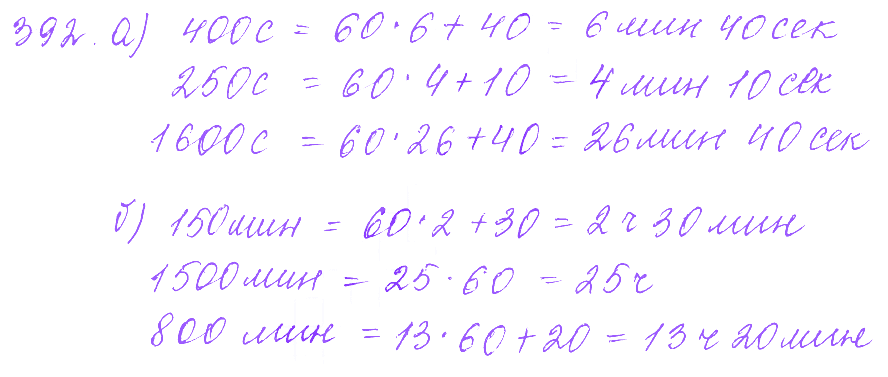 392. а) 400с = 60·6 + 40 = 6 мин 40 сек
250с = 60·4 + 10 = 4 мин 10 сек
1600с = 60·26 + 40 = 26 мин 40 сек
б) 150мин = 60·2 + 30 = 2 ч 30 мин
1500мин = 25·60 = 25ч
800 мин = 13·60 + 20 = 13 ч 20 мин